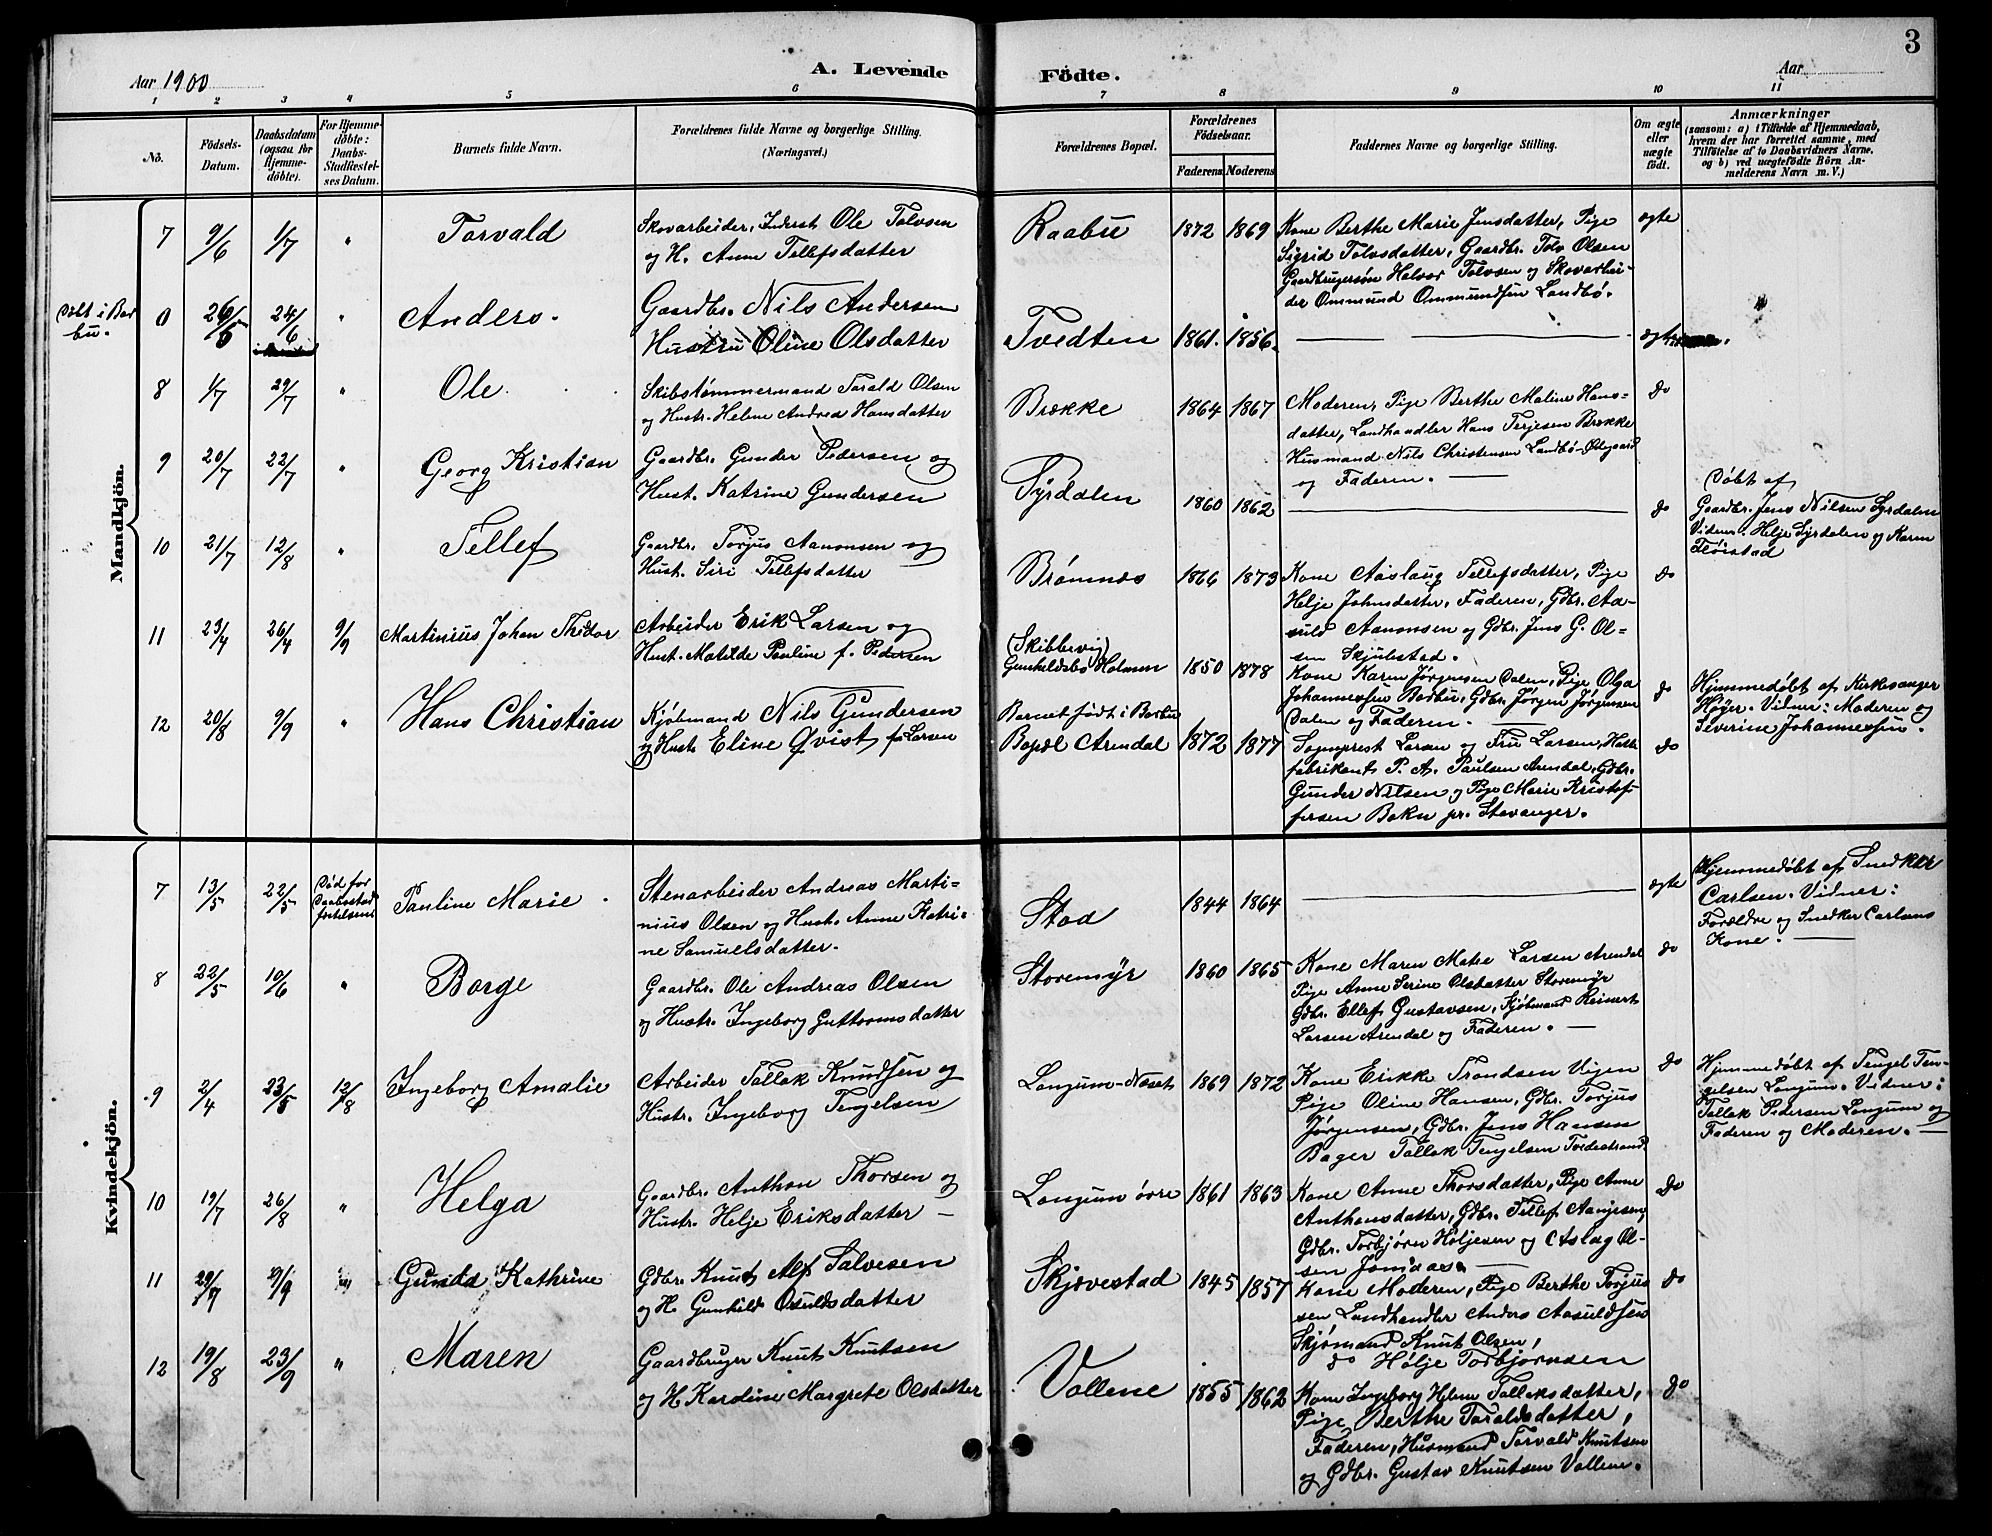 3
Aar 1900
A. Levende Fødte.
Aar
1 2 3 4 5 6 7 8 9 10 11
No.
Fødsels-Datum.
Daabsdatum (ogsaa for Hjemmedøbte).
For Hjemmedøbte: Daabs-Stadfæstelses Datum.
Barnets fulde Navn.
Forældrenes fulde Navne og borgerlige Stilling. (Næringsvei.)
Forældrenes Bopæl.
Forældrenes Fødselsaar.
Faderens Moderens
Faddernes Navne og borgerlige Stilling.
Om ægte eller uægte født.
Anmærkninger
(saasom: a) i Tilfælde af Hjemmedaab,
hvem der har forrettet samme, med
Tilføielse af to Daabsvidners Navne,
og b) ved uægtefødte Børn An-
melderens Navn m. V.)
Mandkjøn.
7 9/6 1/7 " Torvald
Skovarbeider, Inderst Ole Tolvsen
og H. Anne Tellefsdatter
Raabu 1872 1869
Kone Berthe Marie Jensdatter, Pige
Sigrid Tolvsdatter, Gaardbr. Tolv Olsen
Gaardbrugersøn Halvor Tolvsen og Skovarbei-
der Ommund Ommundsen Landbø.
ægte
Døbt i Bar
bu.
0 26/5 24/6 " Anders.
Gaardbr. Nils Andersen
Hustru Oline Olsdatter
Tvedten 1861. 1856.
ægte
8 1/7 29/7 " Ole
Skibstømmermand Torald Olsen
og Hustr. Helene Andrea Hansdatter
Brække 1864 1867
Moderen, Pige Berthe Maline Hans-
datter, Landhandler Hans Terjesen Brække
Husmand Nils Christensen Landbø-Ødegaard
og Faderen.
do
9 20/7 22/7 " Georg Kristian
Gaardbr. Gunder Pedersen og
Hust. Katrine Gundersen
Syrdalen 1860 1862
do
Døbt af
Gaardbr. Jens Nilsen Syrdalen
Vidner: Helje Syrdalen og Karen
Fløistad
10 21/7 12/8 " Tellef
Gaardbr. Torjus Aanonsen og
Hust. Siri Tellefsdatter
Brømnes 1866 1873
Kone Aaslaug Tellefsdatter, Pige
Helje Johnsdatter, Faderen, Gdbr. Aa-
suld Aanonsen og Gdbr. Jens G. Ol-
sen Skjulestad.
do
11 23/4 26/4 9/9 Martinius Johan Thidor
Arbeider Erik Larsen og
Hust. Matilde Pauline f. Pedersen
(Skibbervig)
Gunhildsbo Holmen 1850 1878
Kone Karen Jørgensen Dalen, Pige Olga
Johannessen Barbu, Gdbr. Jørgen Jørgensen
Dalen og Faderen.
do
Hjemmedøbt af Kirkesanger
Høyer. Vidner: Moderen og
Severine Johannessen.
12 20/8 9/9 " Hans Christian
Kjøbmand Nils Gundersen
og Hust Eline Qvist f. Larsen
Barnet født i Barbu
Bopæl Arendal 1872 1877
Sogneprest Larsen og Fru Larsen, Hatte
fabrikant P. A. Paulsen Arendal, Gdbr.
Gunder Nilsen og Pige Marie Kristof-
fersen Bokn pr. Stavanger.
do
Kvindekjøn.
7 13/5 22/5 Død før Daabsstad fæstelsen Pauline Marie
Stenarbeider Andreas Marti-
nius Olsen og Hust. Anne Katri-
ne Samuelsdatter.
Stad 1844 1864
ægte
Hjemmedøbt af Snedker
Carlsen. Vidner:
Forældre og Snedker Carlsens
Kone.
8 22/5 10/6 " Borge
Gaardbr. Ole Andreas Olsen
og Hustr. Ingeborg Guttormsdatter
Storemyr 1860 1865
Kone Maren Marie Larsen Arendal
Pige Anne Serine Olsdatter Storemyr
Gdbr. Ellef Gustavsen, Kjøbmand Reinert
Larsen Arendal og Faderen.
do
9 2/4 23/5 12/8 Ingeborg Amalie
Arbeider Tallak Knudsen og
Hustr. Ingeborg Tengelsen
Longum-Næset 1869 1872
Kone Erikke Trondsen Vigen
Pige Oline Hansen, Gdbr. Torjus
Jørgensen, Gdbr. Jens Hansen
Bager Tallak Tengelsen Tvedestrand
do
Hjemmedøbt af Tengel Ten-
gelsen Longum. Vidner:
Tallak Pedersen Longum og
Faderen og Moderen.
10 19/7 26/8 " Helga
Gaardbr. Anthon Thorsen og
Hustr. Helje Eriksdatter
Longum øvre 1861 1863
Kone Anne Thorsdatter, Pige Anne
Anthonsdatter, Gdbr. Tellef Aanjesen,
Gdbr. Torbjørn Høljesen og Aslag Ol-
sen Jomaas
do
11 29/7 9/9 " Gunda Kathrine
Gdbr. Knut Alf Salvesen
og H. Gunhild Osuldsdatter
Skjævestad 1845 1857
Kone Moderen, Pige Berthe Torjus
sen Landhandler Anders Aasuldsen
Skjømand Knut Olsen,
do Hølje Torbjørnsen
do
12 19/8 23/9 " Maren
Gaardbruger Knut Knutsen
og H. Karoline Margrete Olsdatter
Vollene 1855 1862
Kone Ingeborg Helene Tallaksdatter,
Pige Berthe Taraldsdatter,
Faderen, Husmand Torvald Knutsen
og Gdbr. Gustav Knutsen Vollene.
do